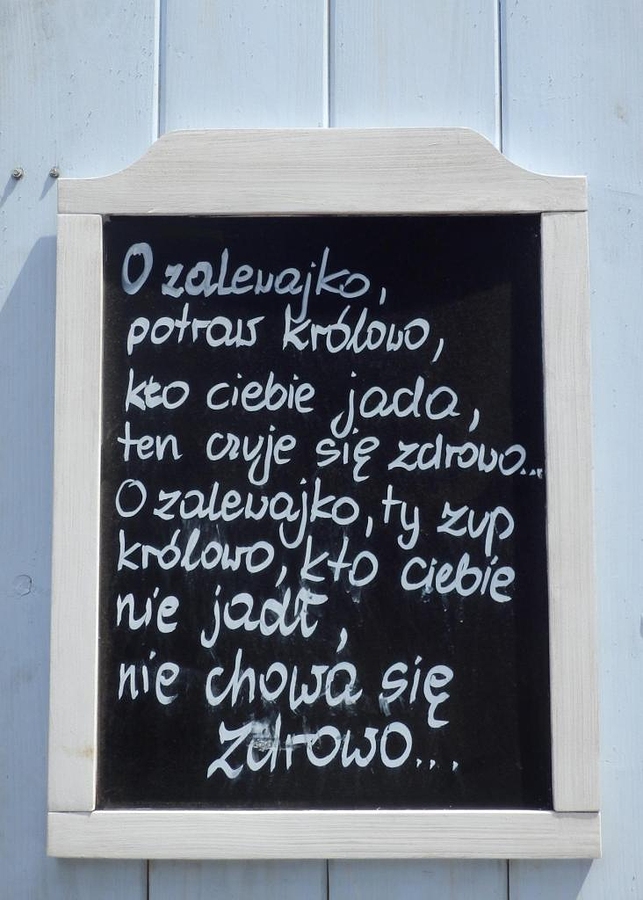 O zalewajko,
potraw królowo,
kto ciebie jada,
ten czyje się zdrowo...
O zalewajko, ty zup
królowo, kto ciebie
nie jadł,
nie chowa się
zdrowo...